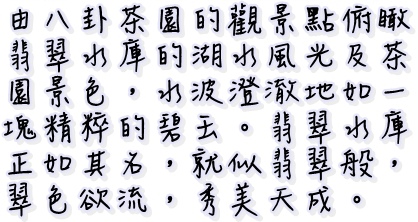 由八卦茶園的觀景點俯瞰
翡翠水庫的湖水風光及茶
園景色，水波澄澈地如一
塊精粹的碧玉。翡翠水庫
正如其名，就似翡翠般，
翠色欲流，秀美天成。